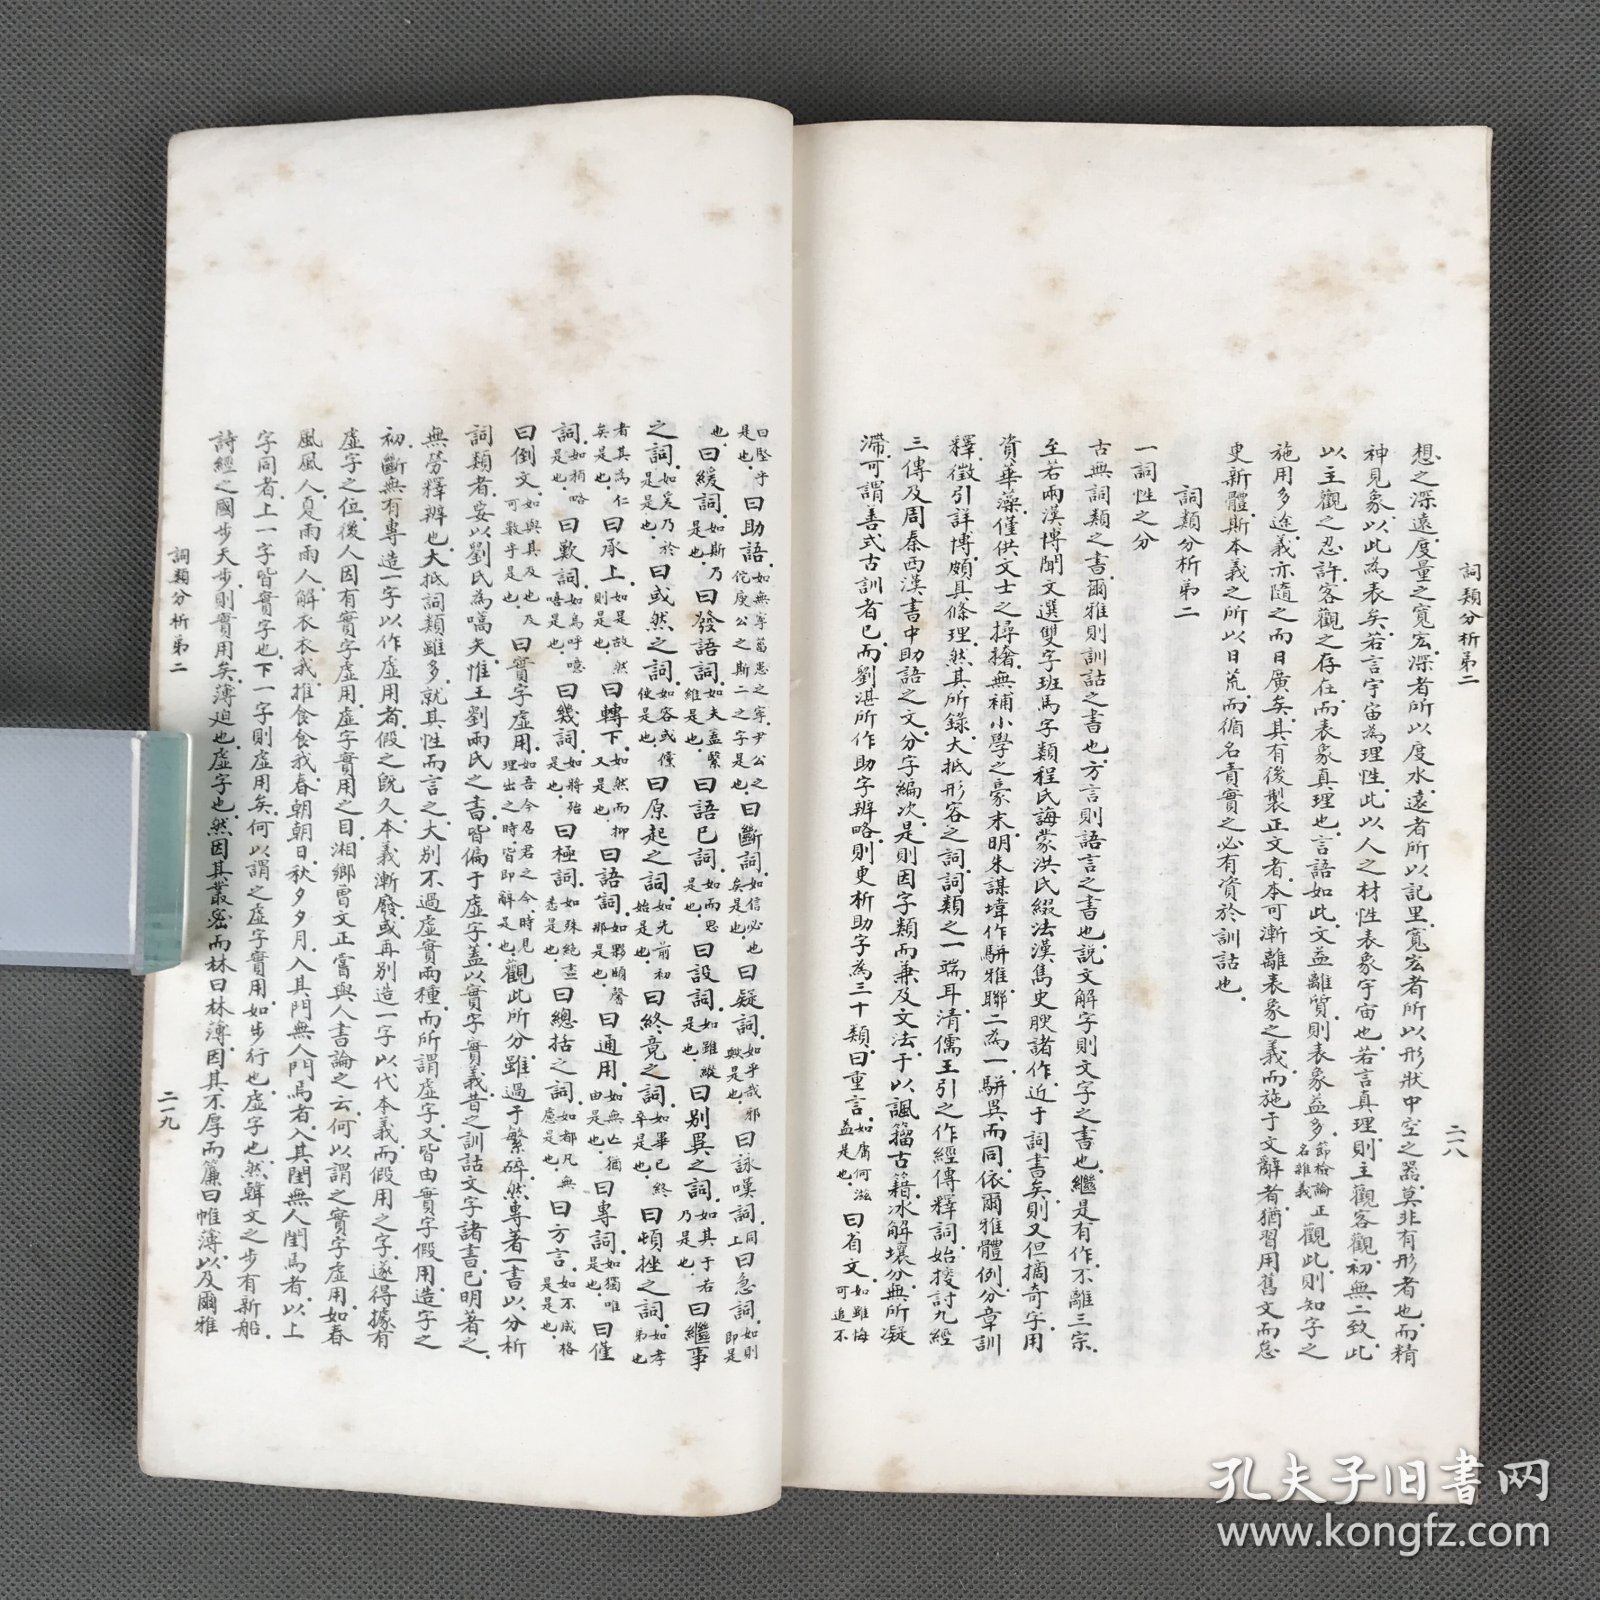 詞類分析第二
二一八
想之深遠度量之寬宏深者所以度水遠者所以記里寬宏者所以形狀中空之器莫非有形者也而精
神見象以此為表矣若言宇宙為理性此以人之材性表象宇宙也若言真理則主觀客觀初無二致此
以主觀之忍許客觀之存在而表象真理也言語如此文益離質則表象益多節檢論正名雜義觀此則知字之
施用多途義亦隨之而日廣矣其有後製正文者本可漸離表象之義而施于文辭者猶習用舊文而怠
更新體斯本義之所以日荒而循名責實之必有資於訓詁也
詞類分析第二
一詞性之分
古典詞類之書爾雅則訓詁之書也方言則語言之書也說文解字則文字之書也繼是有作不離三宗
至若兩漢博聞文選雙字班馬字類程氏誨蒙洪氏綴法漢雋史腴諸作近于詞書矣則又但摘奇字用
資華藻僅供文士之撏撦無補小學之豪末明朱謀㙔作駢雅聯二為一駢異而同依爾雅體例分章訓
釋徵引詳博頗具條理然其所錄大抵形容之詞詞類之一端耳清儒王引之作經傳釋詞始搜討九經
三傳及周秦西漢書中助語之文分字編次是則因字類而兼及文法于以諷籀古籍冰解壤分無所凝
滯可謂善式古訓者已而劉淇所作助字辨略則更析助字為三十類曰重言如庸何滋益是也曰省文如雖悔可追不
曰堅乎是也曰助語如無寧菑患之寧尹公之佗庾公之斯二之字是也曰斷詞如信必也矣是也曰疑詞如乎哉邪歟是也曰詠嘆詞同上曰急詞如則即是
也曰緩詞如斯乃是也曰發語詞如夫蓋繄維是也曰語已詞如而思是也曰設詞如雖縱是也曰別異之詞如其于若乃是也曰繼事
之詞如爰乃於是是也曰或然之詞如容或儻使是也曰原起之詞如先前初始是也曰終竟之詞如畢已終卒是也曰頓挫之詞如孝弟也
者其為仁矣是也曰承上如是故然則是也曰轉下如然而抑又是也曰語詞如夥頤馨那是也曰通用如無亡猶由是也曰專詞如獨唯是也曰僅
詞如稍略是也曰歎詞如烏呼噫嘻是也曰幾詞如將殆是也曰極詞如殊絶盡悉是也曰總括之詞如都凡無慮是也曰方言如不成格是是也
曰倒文如與其及也及可數乎是也曰實字虛用如吾令君君之令時見理出之時皆即辭是也觀此所分雖過于繁碎然專著一書以分析
詞類者妄以劉氏為嚆矢惟王劉兩氏之書皆偏于虛字蓋以實字實義昔之訓詁文字諸書已明著之
無勞釋辨也大抵詞類雖多就其性而言之大別不過虛實兩種而所謂虛字又皆由實字假用造字之
初斷無有專造一字以作虛用者假之既久本義漸廢或再別造一字以代本義而假用之字遂得據有
虛字之位後人因有實字虛用虛字實用之目湘鄉曾文正嘗與人書論之云何以謂之實字虛用如春
風風人夏雨雨人解衣衣我推食食我春朝朝日秋夕夕月入其門無人門焉者入其閨無人閨焉者以上
字同者上一字皆實字也下一字則虛用矣何以謂之虛字實用如步行也虛字也然韓文之步有新船
詩經之國步天步則實用矣薄迫也虛字也然因其叢密而林曰林薄因其不厚而簾曰帷薄以及爾雅
詞類分析第二
二一九
孔夫子旧书网
www.kongfz.com